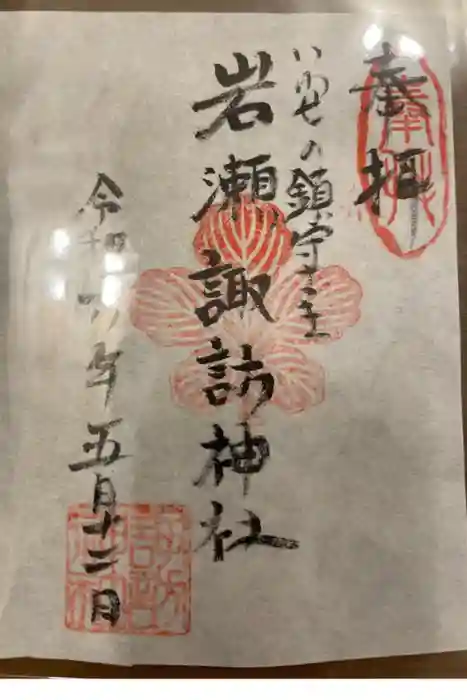 奉拝
いわせの鎮守さま
岩瀬諏訪神社
令和 年五月十二日